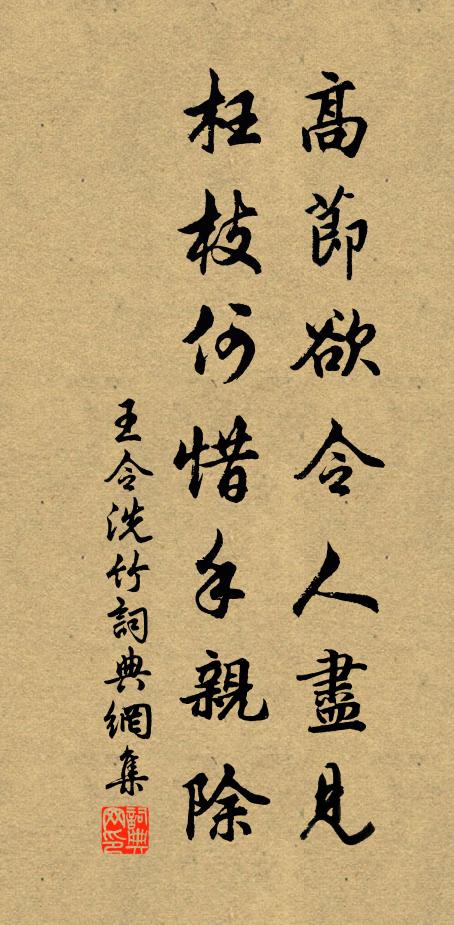 高節欲令人盡見
枉枝何惜手親除
王令洗竹詞典網集
詞典网印